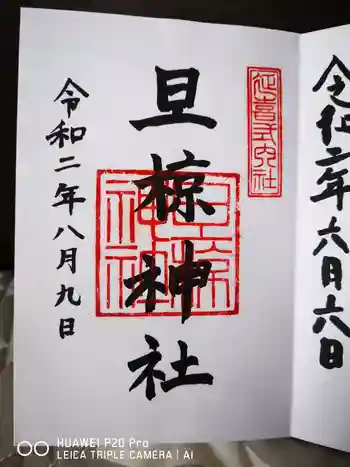 令和二年六月六日
延喜式内社
旦椋神社
旦椋神社
令和二年八月九日
HUAWEI P20 Pro
LEICA TRIPLE CAMERA | AI